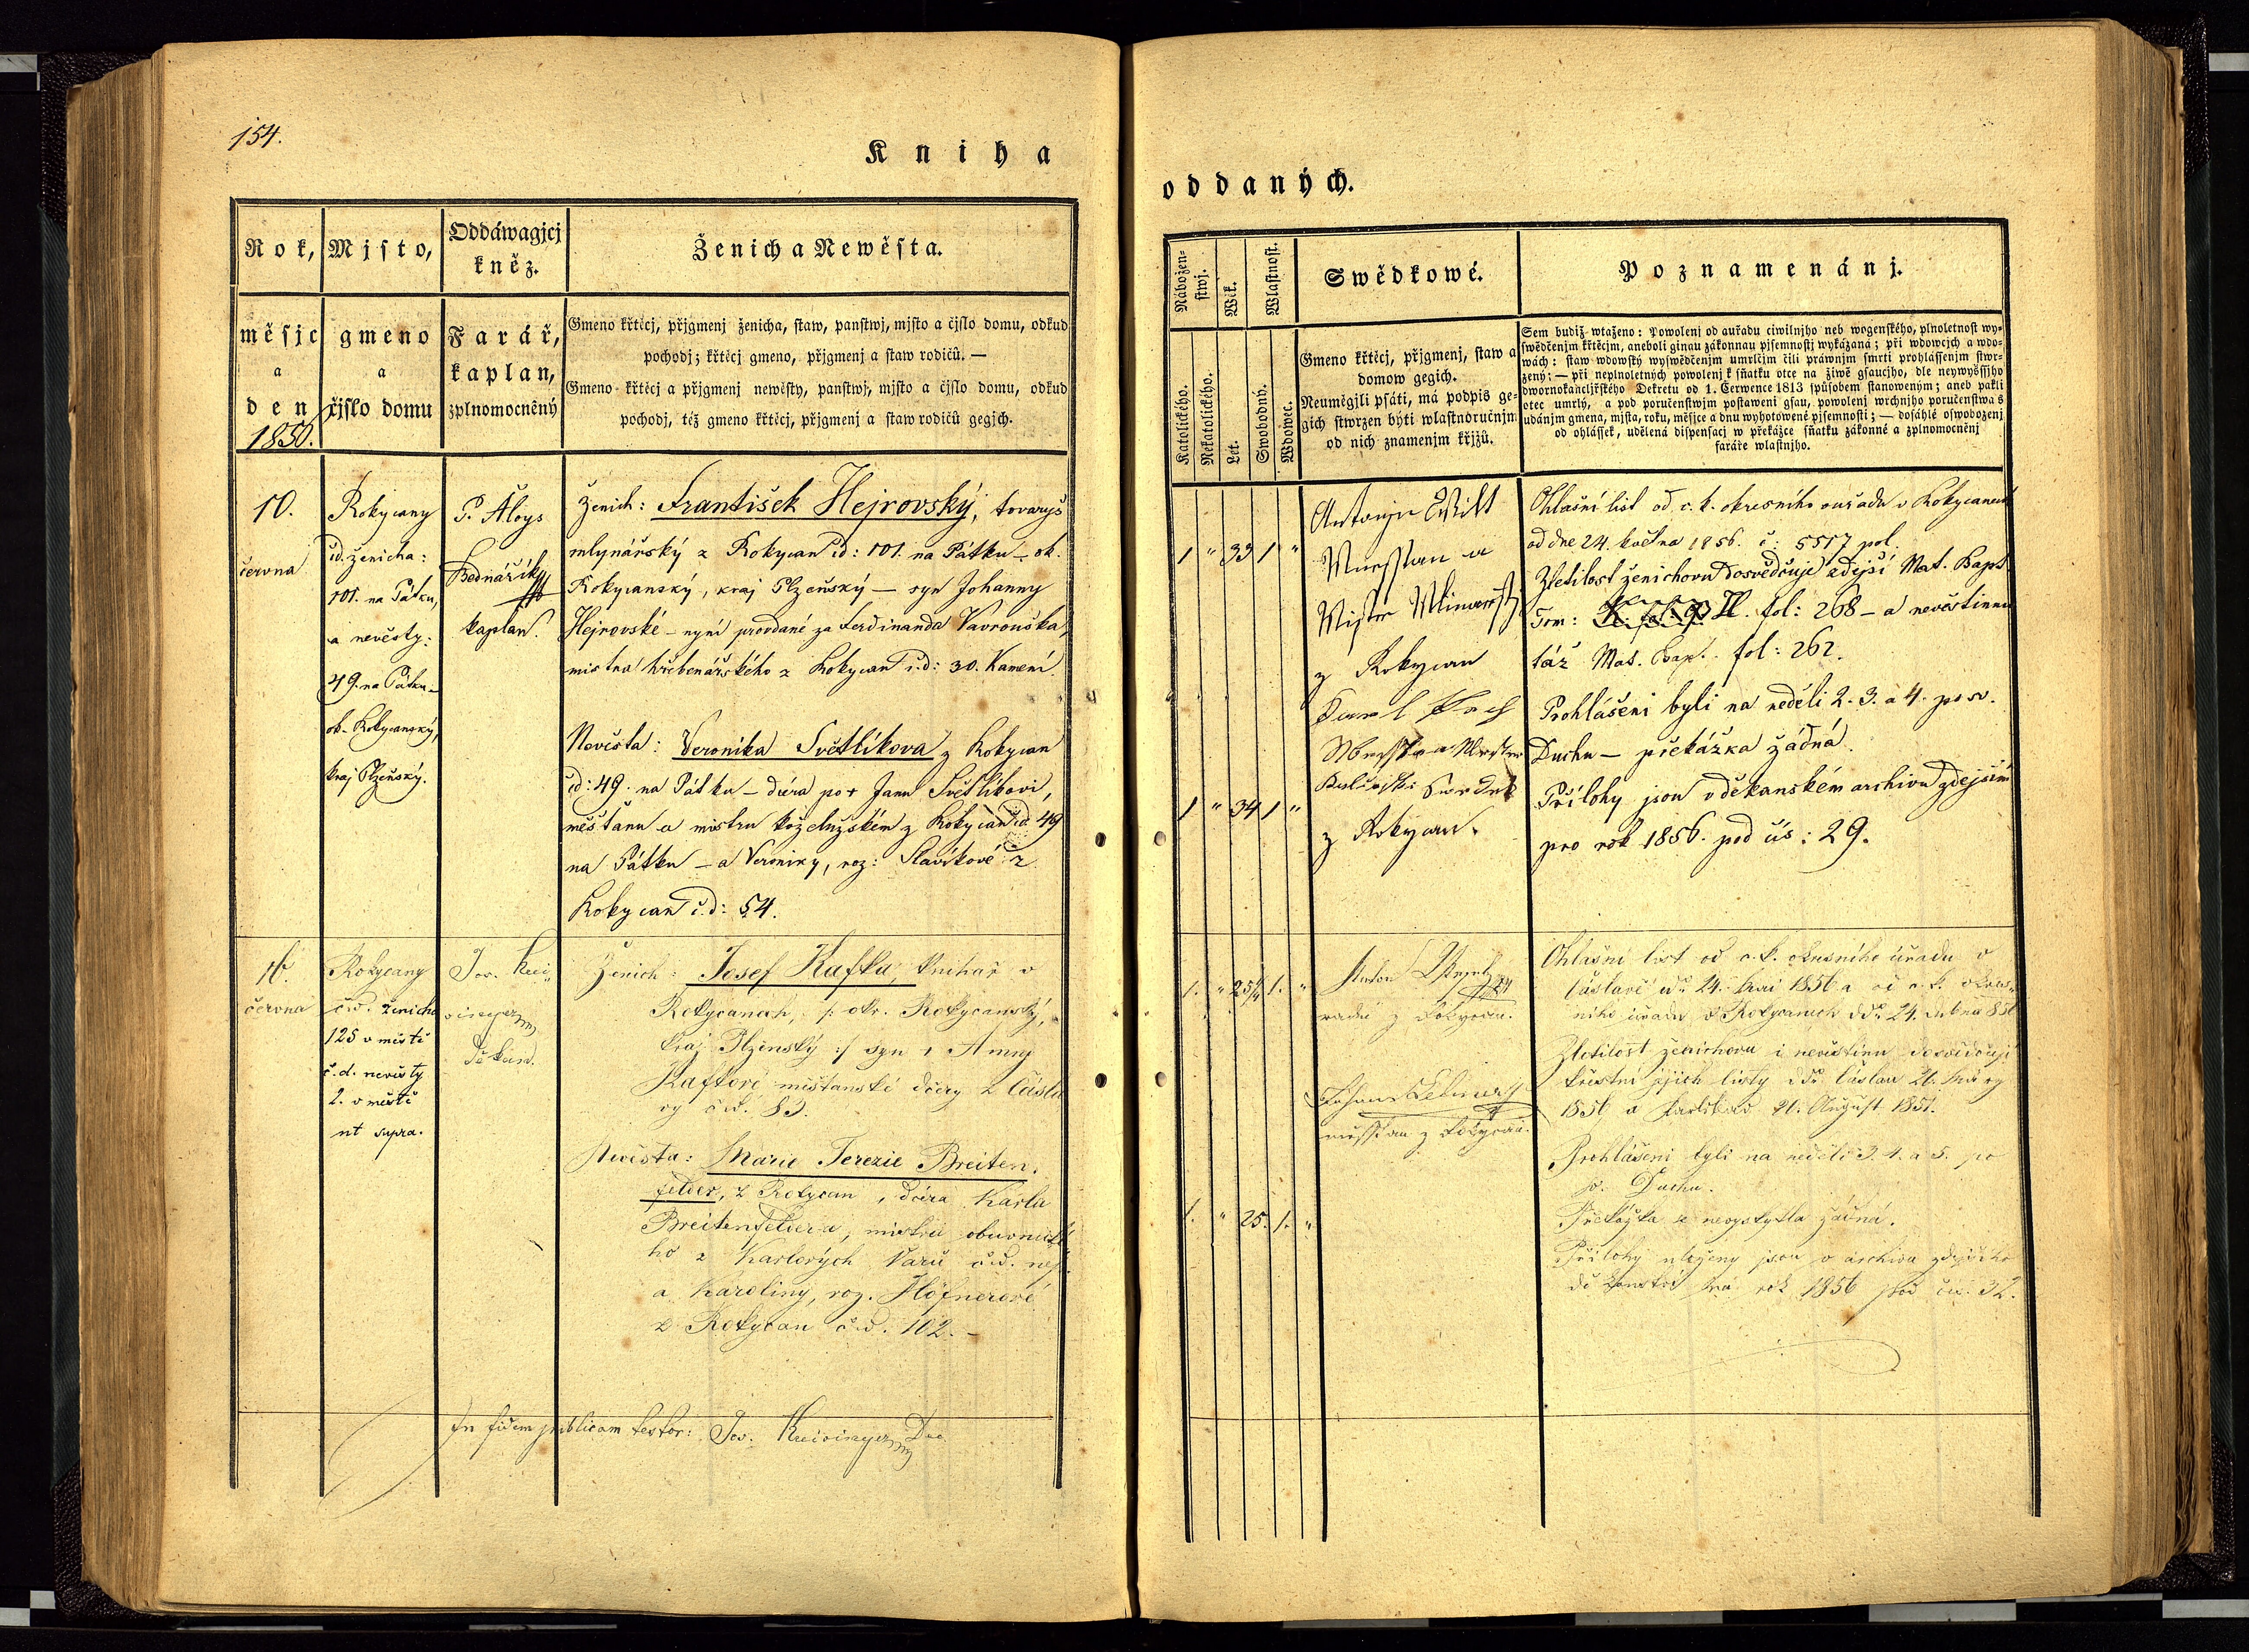 154.
Kniha
Rok, Mjsto, Oddáwagjcj kněz. Ženich a Newěsta.
měsjc a den
1850.
gmeno a čjslo domu
Farář, kaplan, zplnomocněný
Gmeno křtěcj, přjgmenj ženicha, staw, panstwj, mjsto a čjslo domu, odkud
pochodj; křtěcj gmeno, přjgmenj a staw rodičů. —
Gmeno křtěcj a přjgmenj newěsty, panstwj, mjsto a čjslo domu, odkud
pochodj, též gmeno křtěcj, přjgmenj a staw rodičů gegjch.
10.
června
Rokycany
čd. ženicha:
101. na Pátku,
a nevěsty:
49. na Pátku —
ok. Rokycanský,
kraj Plzeňský.
P. Aloys
Bednářík
kaplan.
Ženich: František Hejrovský, tovaryš
mlynářský z Rokycan čd: 101. na Pátku — ok.
Rokycanský, kraj Plzeňský — syn Johanny
Hejrovské — nyní provdané za Ferdinanda Vavrouška,
mistra hřebenářského z Rokycan č.d: 30. Kamení.
Nevěsta: Veronika Světlíkova z Rokycan
čd: 49. na Pátku — dcera po + Janu Světlíkovi,
měšťanu a mistru koželužském z Rokycan čd 49
na Pátku — a Veroniky, roz: Slavíkové z
Rokycan č.d: 54.
června
Rokycany
č.d. ženicha
125 v městě
č.d. nevěsty
2. v městě
ut supra.
Jos.
Děkan.
Ženich: Josef Kafka, knihař v
Rokycanech, /: okr. Rokycanský,
kraj Plzenský :/ syn Anny
Kafkove měšťanské dcery z Čásla
vy č.d. 83.
Nevěsta: Marie Terezie Breiten-
felder, z Rokycan, dcera Karla
Breitenfeldera, mistra obuvnické
ho z Karlových Varů č.d.
a Karoliny, roz. Höfnerové
z Rokycan č.d. 102. —
In fidem publicam testor: Jos.
oddaných.
Náboženstwj. Wěk. Wlastnost. Swědkowé. Poznamenánj.
Katolického. Nekatolického. Let. Swobodný. Wdowec.
Gmeno křtěcj, přjgmenj, staw a
domow gegich.
Neuměgjli psáti, má podpis ge-
gich stwrzen býti wlastnoručnjm
od nich znamenjm křjžů.
Sem budiž wtaženo: Powolenj od auřadu ciwilnjho neb wogenského, plnoletnost wy-
swědčenjm křtěcjm, aneboli ginau zákonnau pjsemnostj wykázaná; při wdowcjch a wdo-
wách: staw wdowský wyswědčenjm umrlčjm čili práwnjm smrti prohlássenjm stwr-
zený; — při neplnoletných powolenj k sňatku otce na žiwě gsaucjho, dle neywyššjho
dwornokancljřského Dekretu od 1. Července 1813 spůsobem stanoweným; aneb pakli
otec umrlý, a pod poručenstwjm postaweni gsau, powolenj wrchnjho poručenstwa s
udánjm gmena, mjsta, roku, měsjce a dnu wyhotowené pjsemnosti; — dosáhlé oswobozenj
od ohlássek, udělená dispensacj w překážce sňatku zákonné a zplnomocněnj
faráře wlastnjho.
1 " 33 1 "
Antonjn
Miesstian a
Mistr
z Rokycan
1 " 34 1 "
z Rokycan.
Ohlašní list od c. k. okresního ouřadu v Rokycanech
od dne 24. května 1856. č: 5517 pol.
Zletilost ženichovu dosvědčuje zdejší Mat. Bapt.
Tom: II. fol: 268 — a nevěstinu
táž Mat. Bapt. fol: 262.
Prohlášeni byli na neděli 2. 3. a 4. po sv.
Duchu — překážka žádná.
Přílohy jsou v děkanském archivu zdejším
pro rok 1856. pod čís: 29.
1. " 25 1. "
Anton
z Rokycan.
Johann
miesstian z Rokycan.
1. " 25. 1. "
Ohlašní list od c. k. okresního úřadu v
Čáslavě 24. 1856 a od c. k. okres-
ního úřadu v Rokycanech 24. dubna 856
Zletilost ženichova i nevěstinu dosvědčují
křestní jejich listy Čáslav
1856 a 21. August 1851.
Prohlášeni byli na neděli 3. 4. a 5. po
sv. Duchu.
Překážka se nevyskytla žádná.
Přílohy uloženy jsou v archivu zdejšího
děkanství na rok 1856 pod čís. 32.